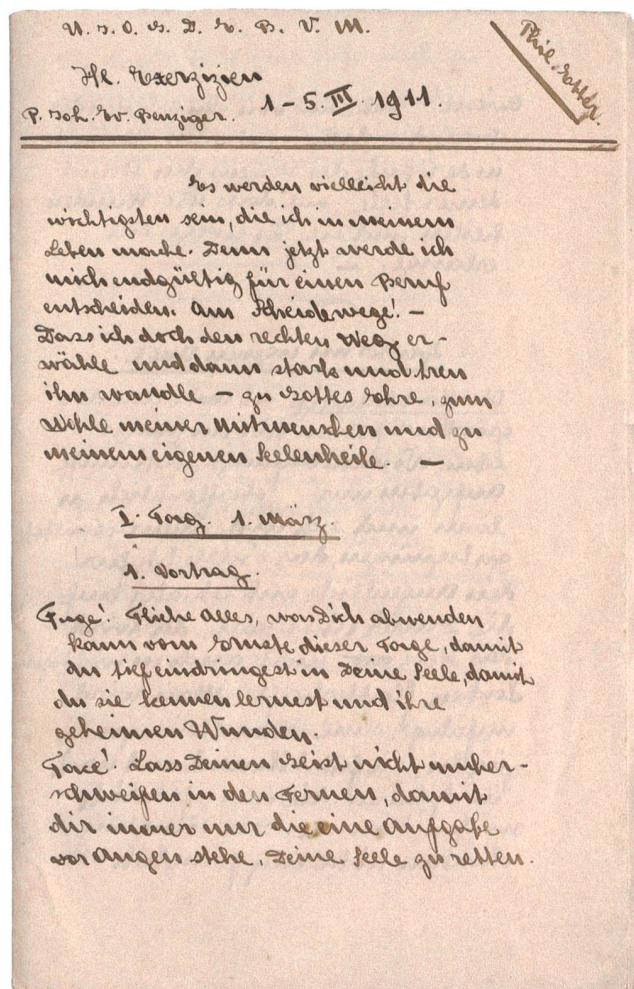 U. I. O. G. D. E. B. V. M.
Phil. Etter.
Hl. Exerzizien
P. Joh. Ev. Benziger. 1–5. III. 1911.
Es werden vielleicht die
wichtigsten sein, die ich in meinem
Leben mache. Denn jetzt werde ich
mich endgültig für einen Beruf
entscheiden. Am Scheidewege! —
Dass ich doch den rechten Weg er-
wähle und dann stark und treu
ihn wandle — zu Gottes Ehre, zum
Wohle meiner Mitmenschen und zu
meinem eigenen Seelenheile. —
I. Tag. 1. März.
1. Vortrag.
Fuge! Fliehe Alles, was Dich abwenden
kann vom Ernste dieser Tage, damit
du tief eindringest in Deine Seele, damit
du sie kennen lernest und ihre
geheimen Wunden.
Tace! Lass Deinen Geist nicht umher-
schweifen in den Fernen, damit
dir immer nur die eine Aufgabe
vor Augen stehe, Deine Seele zu retten.